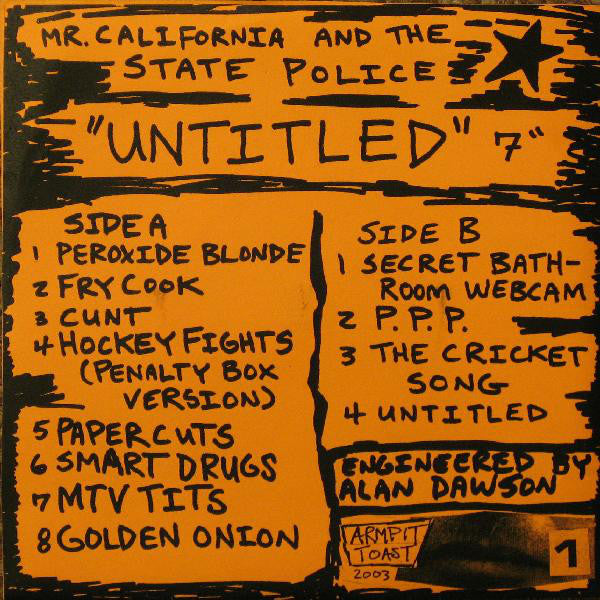 MR. CALIFORNIA AND THE
STATE POLICE
"UNTITLED" 7"
SIDE A
1 PEROXIDE BLONDE
2 FRY COOK
3 CUNT
4 HOCKEY FIGHTS
(PENALTY BOX
VERSION)
5 PAPERCUTS
6 SMART DRUGS
7 MTV TITS
8 GOLDEN ONION
SIDE B
1 SECRET BATH-
ROOM WEBCAM
2 P.P.P.
3 THE CRICKET
SONG
4 UNTITLED
ENGINEERED BY
ALAN DAWSON
ARMPIT
TOAST
2003
1